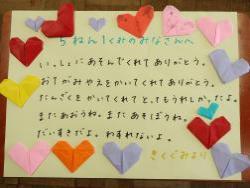 5ねん1くみのみなさんへ
いっしょにあそんでくれてありがとう。
おてがみやえをかいてくれてありがとう。
たんざくをかいてくれてとってもうれしかった。
またあおうね。またあそぼうね。
だいすきだよ。わすれないよ。
きくぐみより